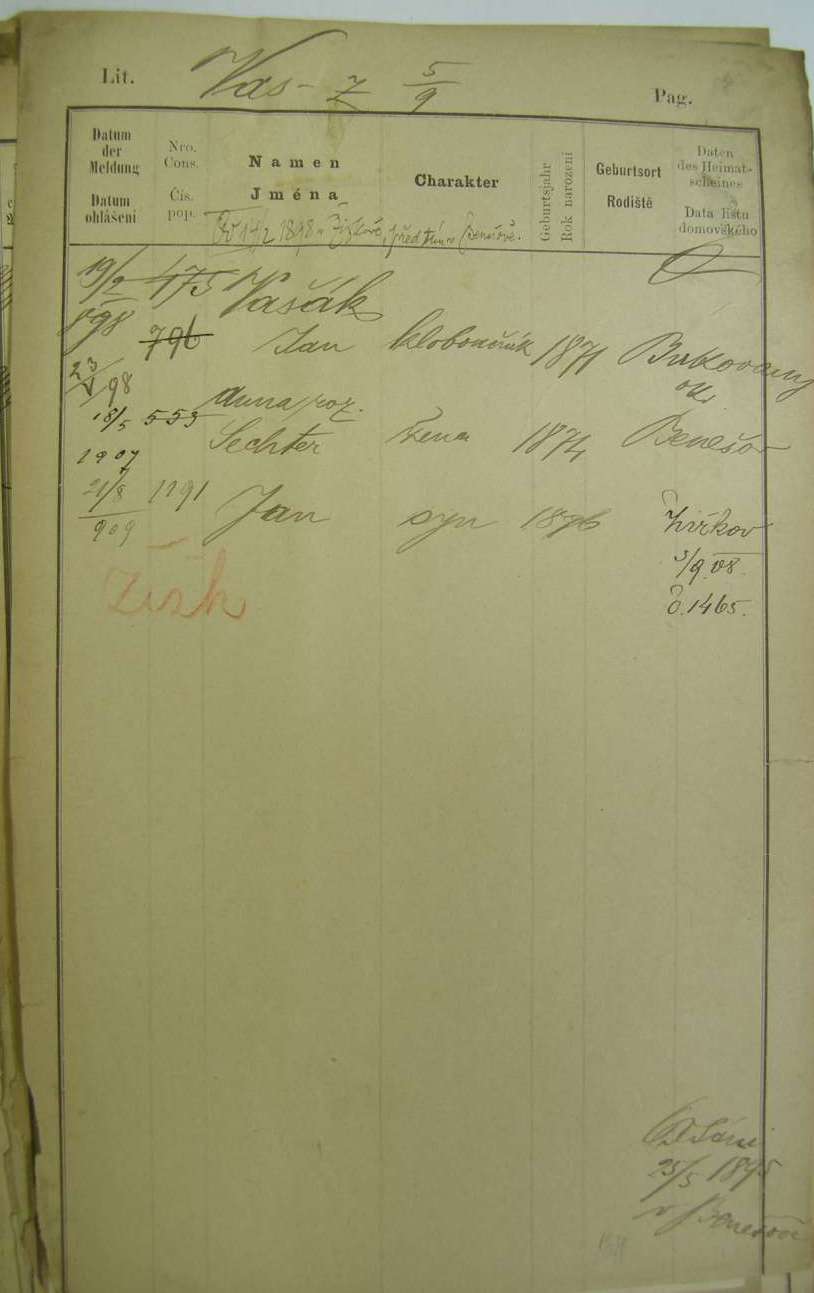 Lit. Vas - Z 5/9 Pag.
Datum der Meldung
Datum ohlášení
Nro. Cons.
Čís. pop.
Namen
Jména
Charakter
Geburtsjahr
Rok narození
Geburtsort
Rodiště
Daten des Heimat-scheines
Data listu domovského
14/2 1898 v Žižkově, před tím v Benešově.
19/2 898 475 Vašák
796 Jan kloboučník 1871 Bukovany
23/V 98 ok.
Anna roz.
18/5 1907 553 Sechter žena 1874 Benešov
21/8 909 1191 Jan syn 1896 Žižkov
3/9 08.
č. 1465.
Žižk
25/5 1895
v Benešově